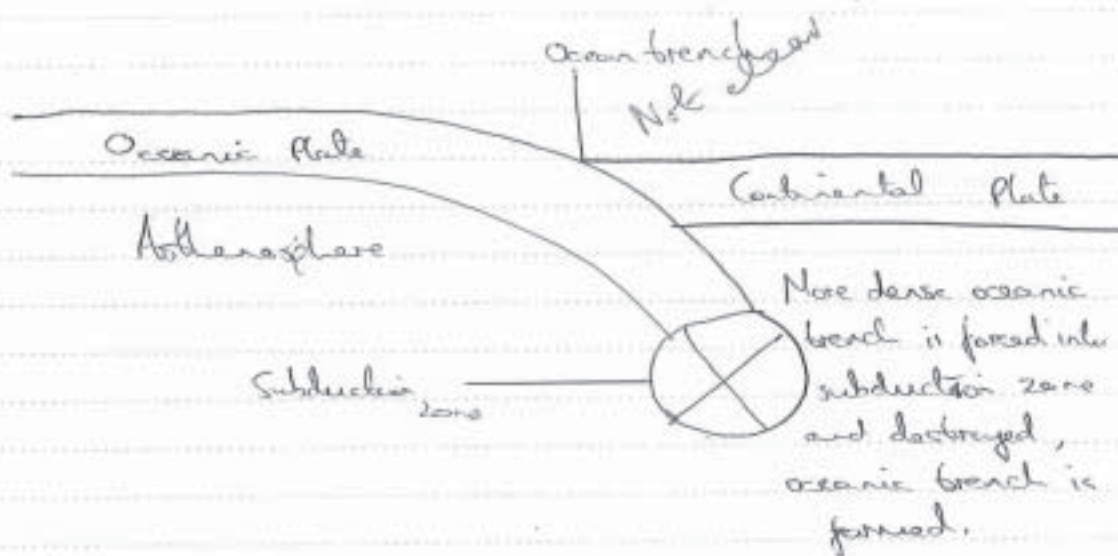 Ocean trench
Not
Oceanic Plate
Continental Plate
Asthenosphere
More dense oceanic
trench is forced into
subduction zone
and destroyed,
oceanic trench is
formed.
Subduction
zone